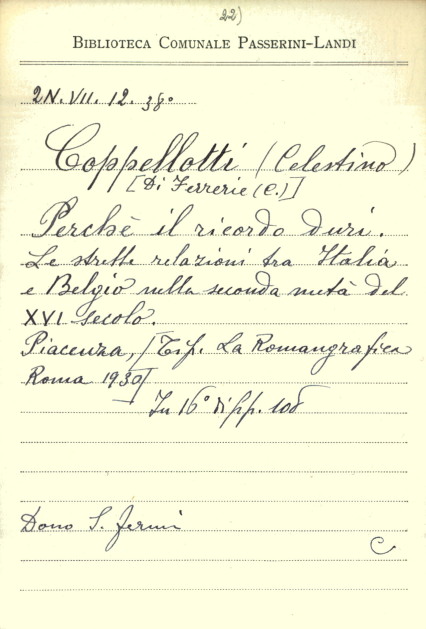 22)
BIBLIOTECA COMUNALE PASSERINI-LANDI
2N. VII. 12. 38º
Coppellotti (Celestino)
[Di Ferrerie (C.)]
Perchè il ricordo duri.
Le strette relazioni tra Italia
e Belgio nella seconda metà del
XVI secolo.
Piacenza, [Tip. La Romangrafica
Roma 1930]
In 16º di pp. 108
Dono S. Fermi
C